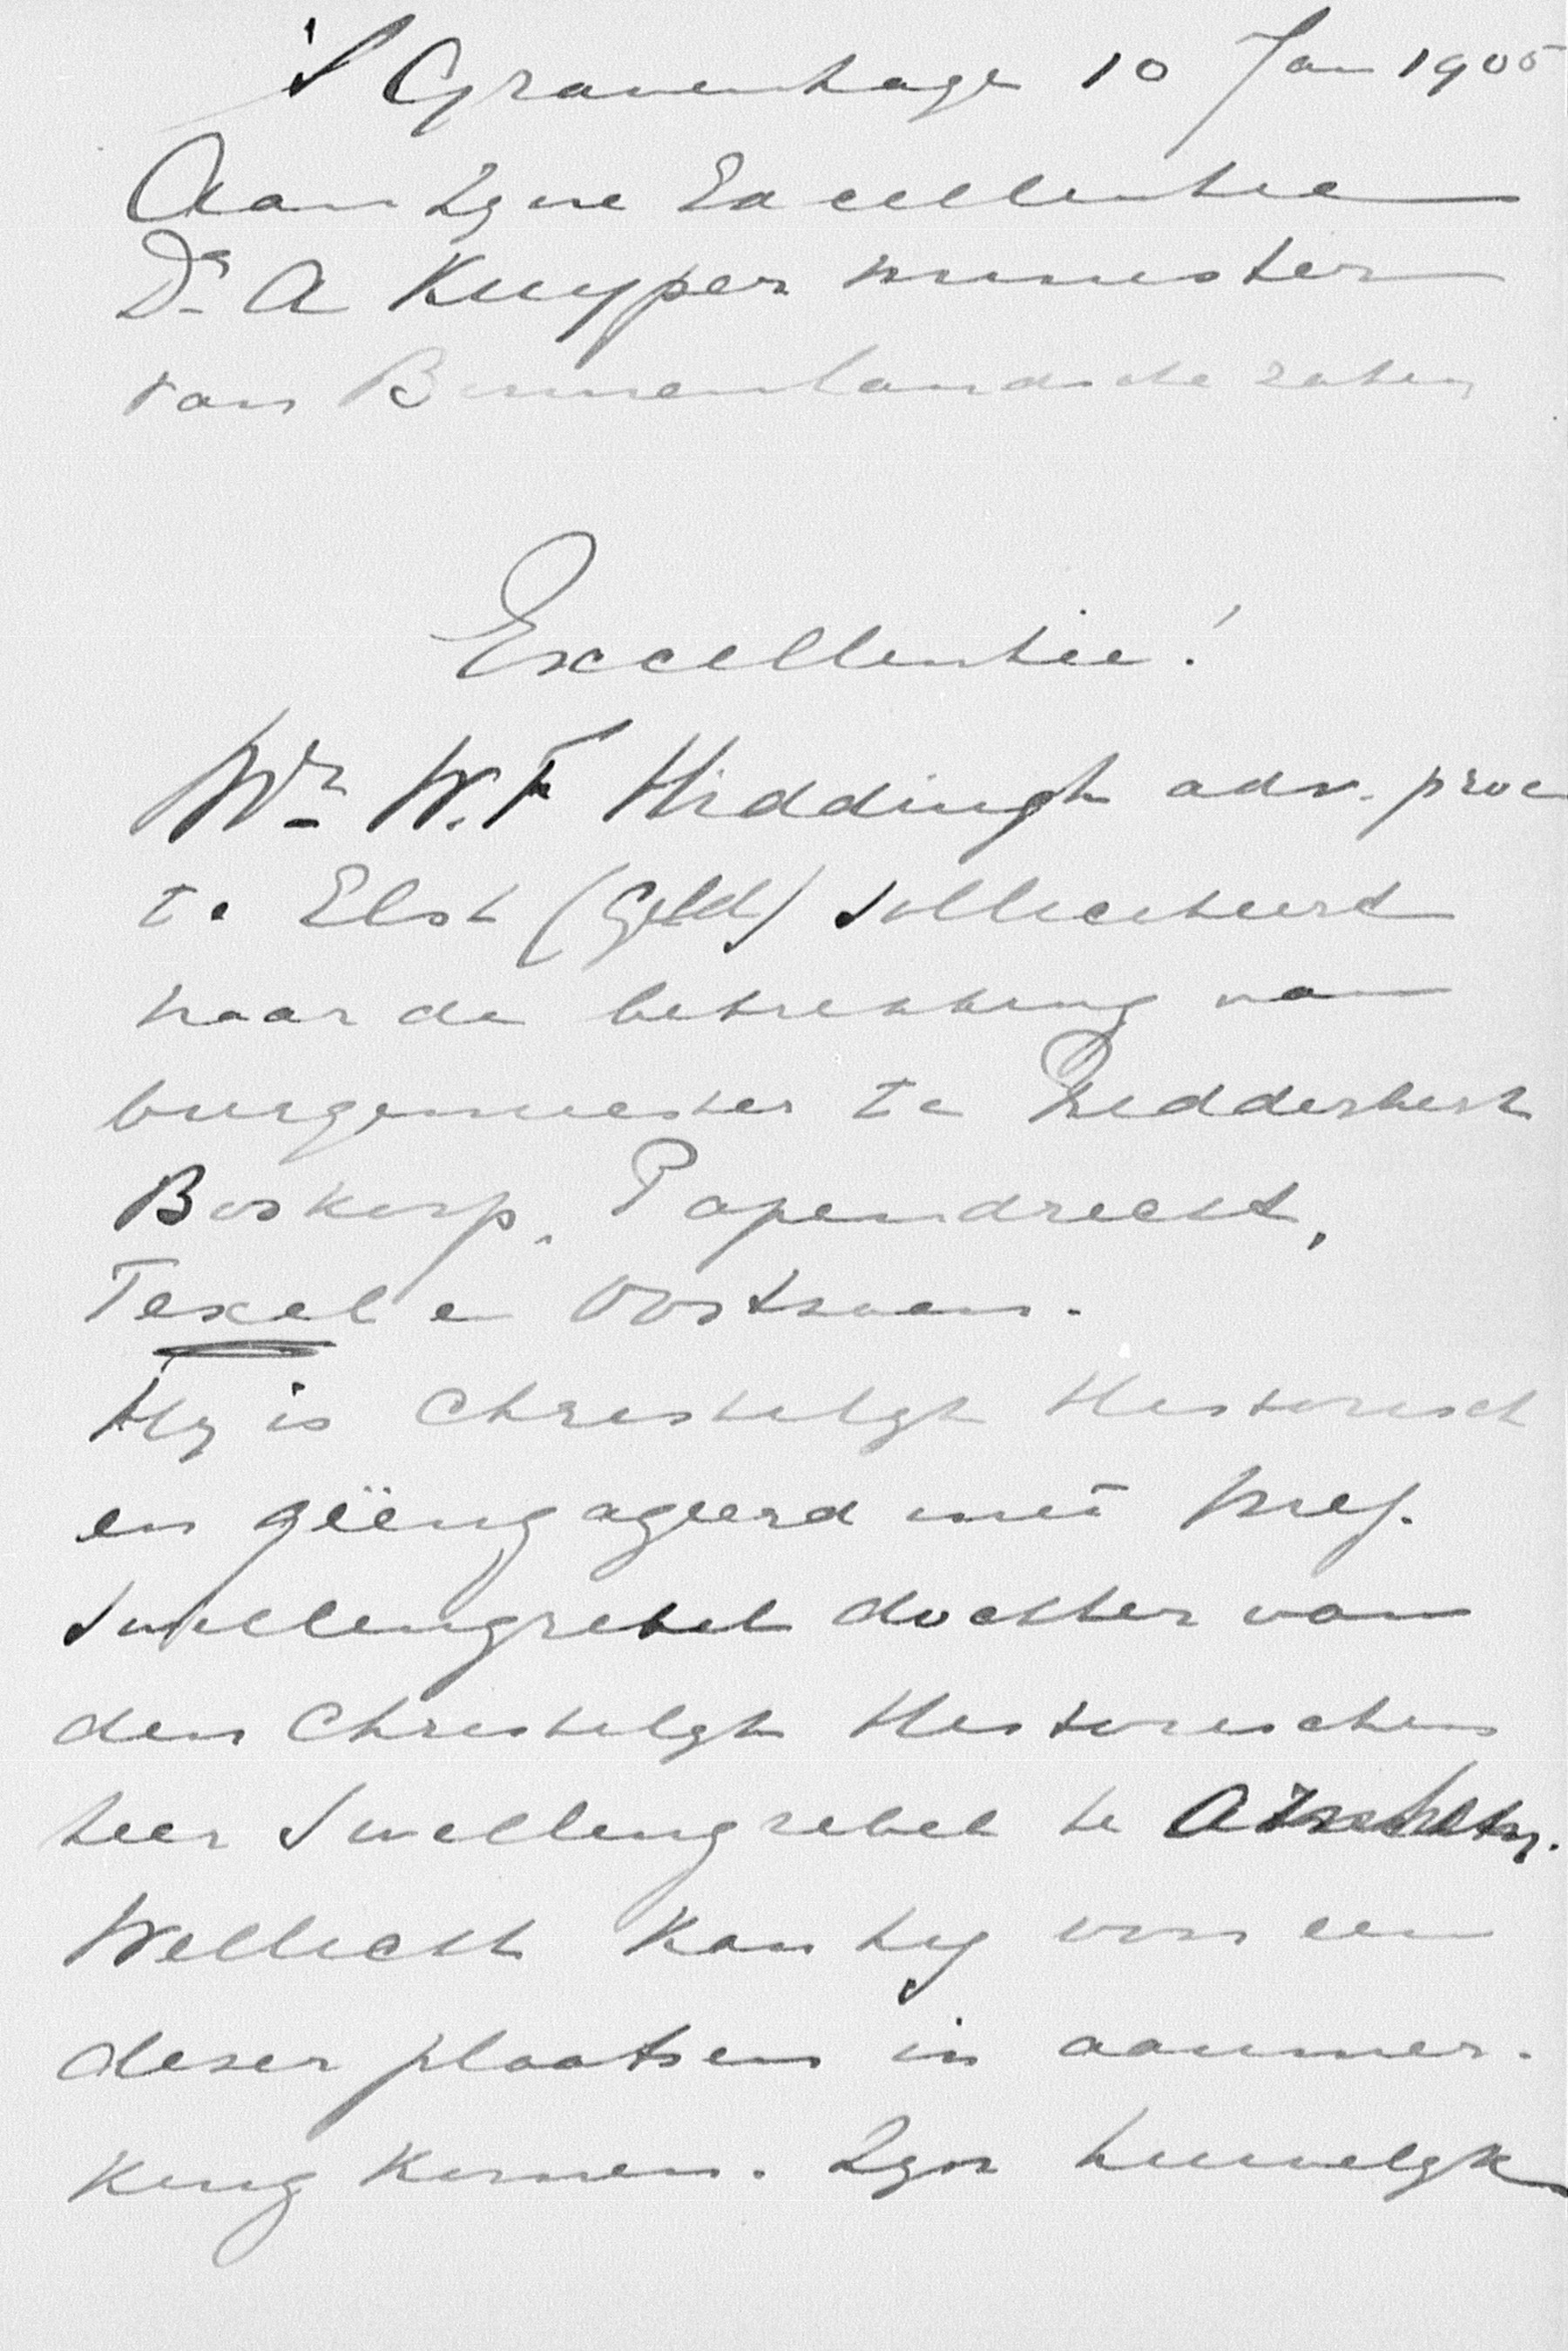 'S Gravenhage 10 Jan 1905
Aan Zyne Excellentie
Dr. A Kuyper minister
van Binnenlandsche zaken
Excellentie!
Mr. W. F Hiddingh adv. proc
te Elst (Geld) solliciteerd
naar de betrekking van
burgemeester te Ridderkerk
Boskoop, Papendrecht,
Texel en Oostzaan.
Hy is Christelyk Historisch
en geëngageerd met Mej.
Swellengrebel dochter van
den Christelyk Historischen
heer Swellengrebel te
Wellicht kan hy voor een
dezer plaatsen in aanmer-
king komen. Zyn huwelyk